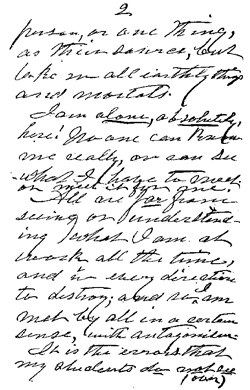 2
person, or one thing,
as their source, but
take in all earthly things
and mortals.
I am alone, absolutely,
here! No one can know
me really, or can see
what I have to meet
or meet it for me.
All are far from
seeing or understand-
ing what I am at
work all the time,
and in every direction
to destroy; and so I am
met by all in a certain
sense, with antagonism.
It is the errors that
my students do not see
(over)